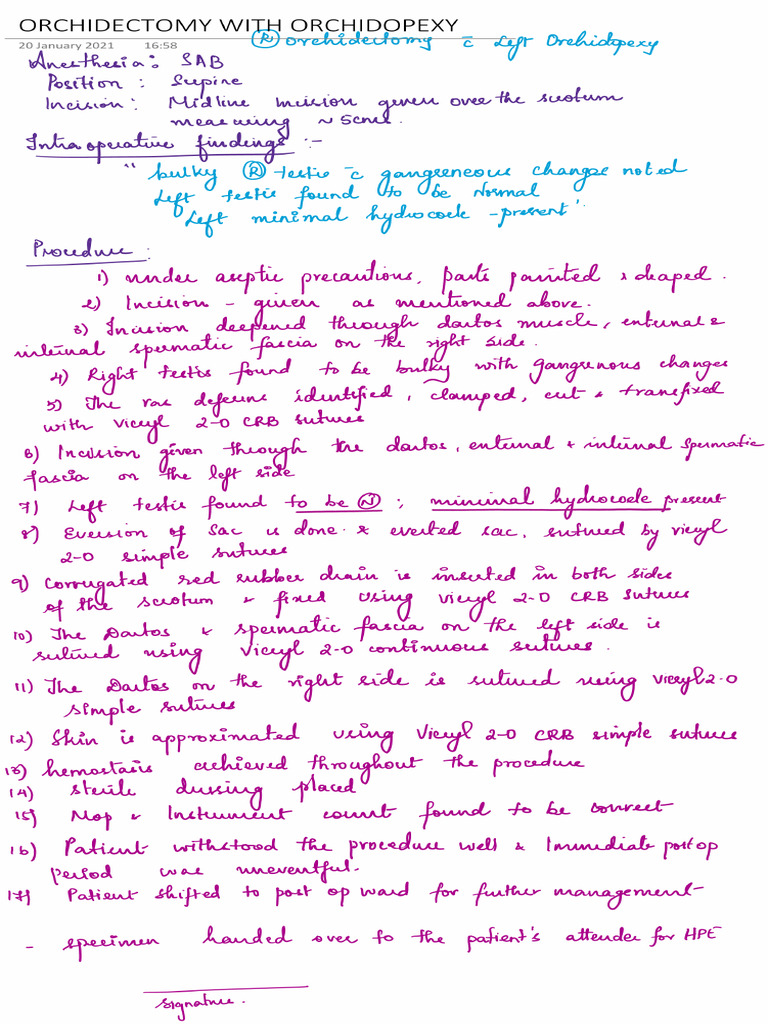 ORCHIDECTOMY WITH ORCHIDOPEXY
20 January 2021 16:58
Ⓡ Orchidectomy c̄ Left Orchidopexy
Anesthesia: SAB
Position: Supine
Incision: Midline incision given over the scrotum
measuring ~ 5cms.
Intraoperative findings :-
"bulky Ⓡ testis c̄ gangreneous changes noted
Left testis found to be Normal
Left minimal hydrocoele - present".
Procedure:
1) under aseptic precautions, parts painted & draped.
2) Incision - given as mentioned above.
3) Incision deepened through dartos muscle, external &
internal spermatic fascia on the right side.
4) Right testis found to be bulky with gangrenous changes
5) The vas deferens identified, clamped, cut & transfixed
with Vicryl 2-0 CRB sutures
6) Incision given through the dartos, external & internal spermatic
fascia on the left side
7) Left testis found to be Ⓝ ; minimal hydrocoele present
8) Eversion of sac is done & everted sac, sutured by vicryl
2-0 simple sutures
9) Corrugated red rubber drain is inserted in both sides
of the scrotum & fixed using Vicryl 2-0 CRB sutures
10) The Dartos & spermatic fascia on the left side is
sutured using Vicryl 2-0 continuous sutures.
11) The Dartos on the right side is sutured using Vicryl 2-0
simple sutures
12) Skin is approximated using Vicryl 2-0 CRB simple suture
13) hemostasis achieved throughout the procedure
14) sterile dressing placed
15) Mop & Instrument count found to be correct
16) Patient withstood the procedure well & Immediate post op
period was uneventful.
17) Patient shifted to post op ward for further management
- specimen handed over to the patient's attender for HPE
signature.